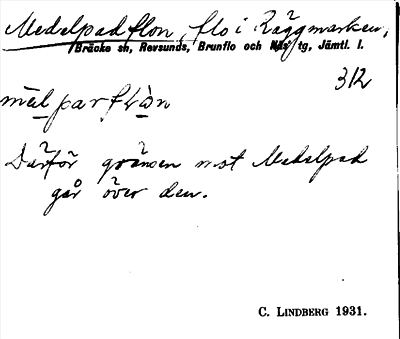 Medelpadflon, flo i Räggmarken,
Bräcke sn, Revsunds, Brunflo och Näs tg, Jämtl. l.
312
Därför gränsen mot Medelpad
går över den.
C. LINDBERG 1931.